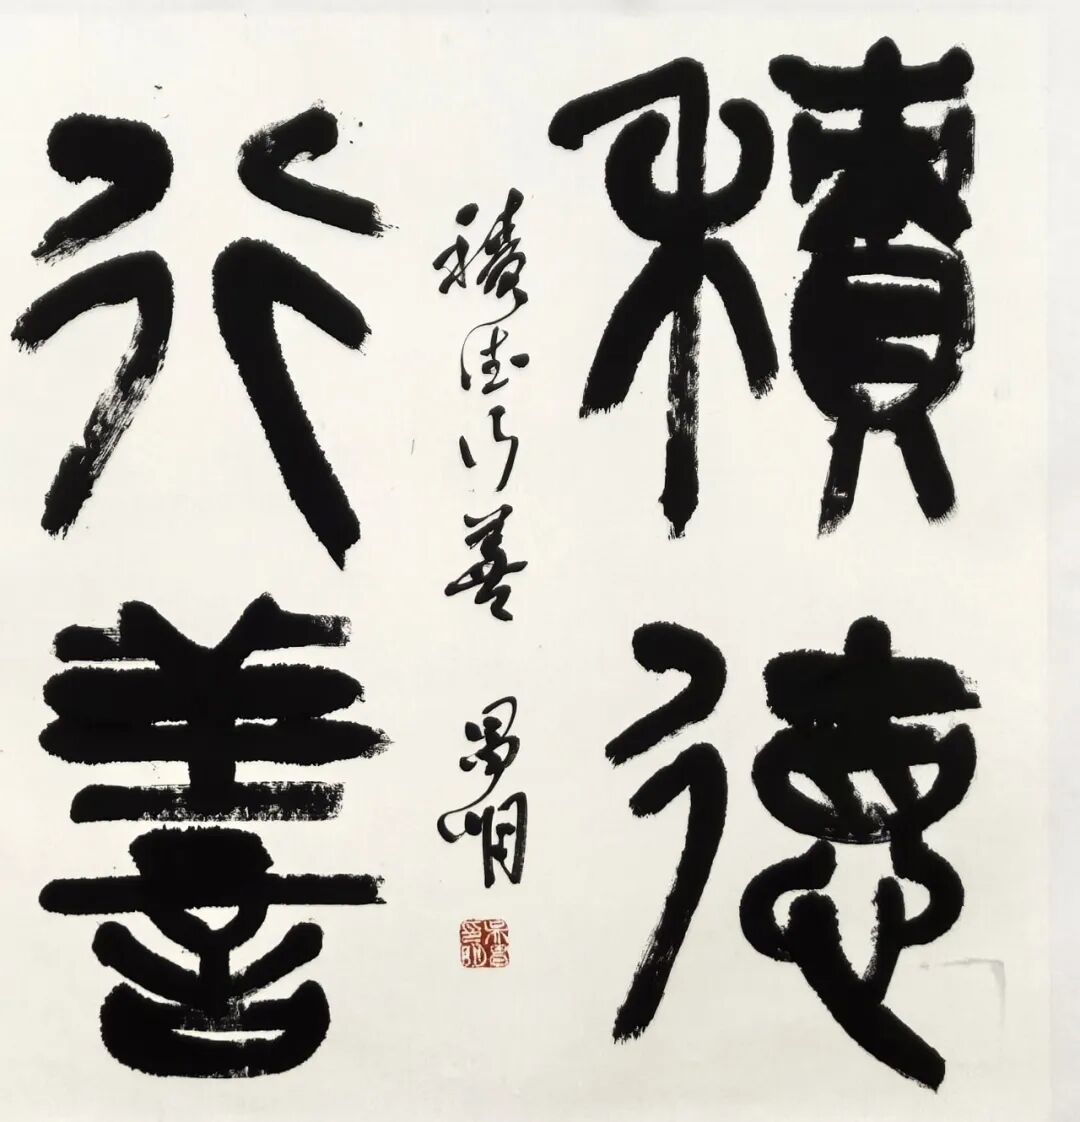 積德
行善
積德行善